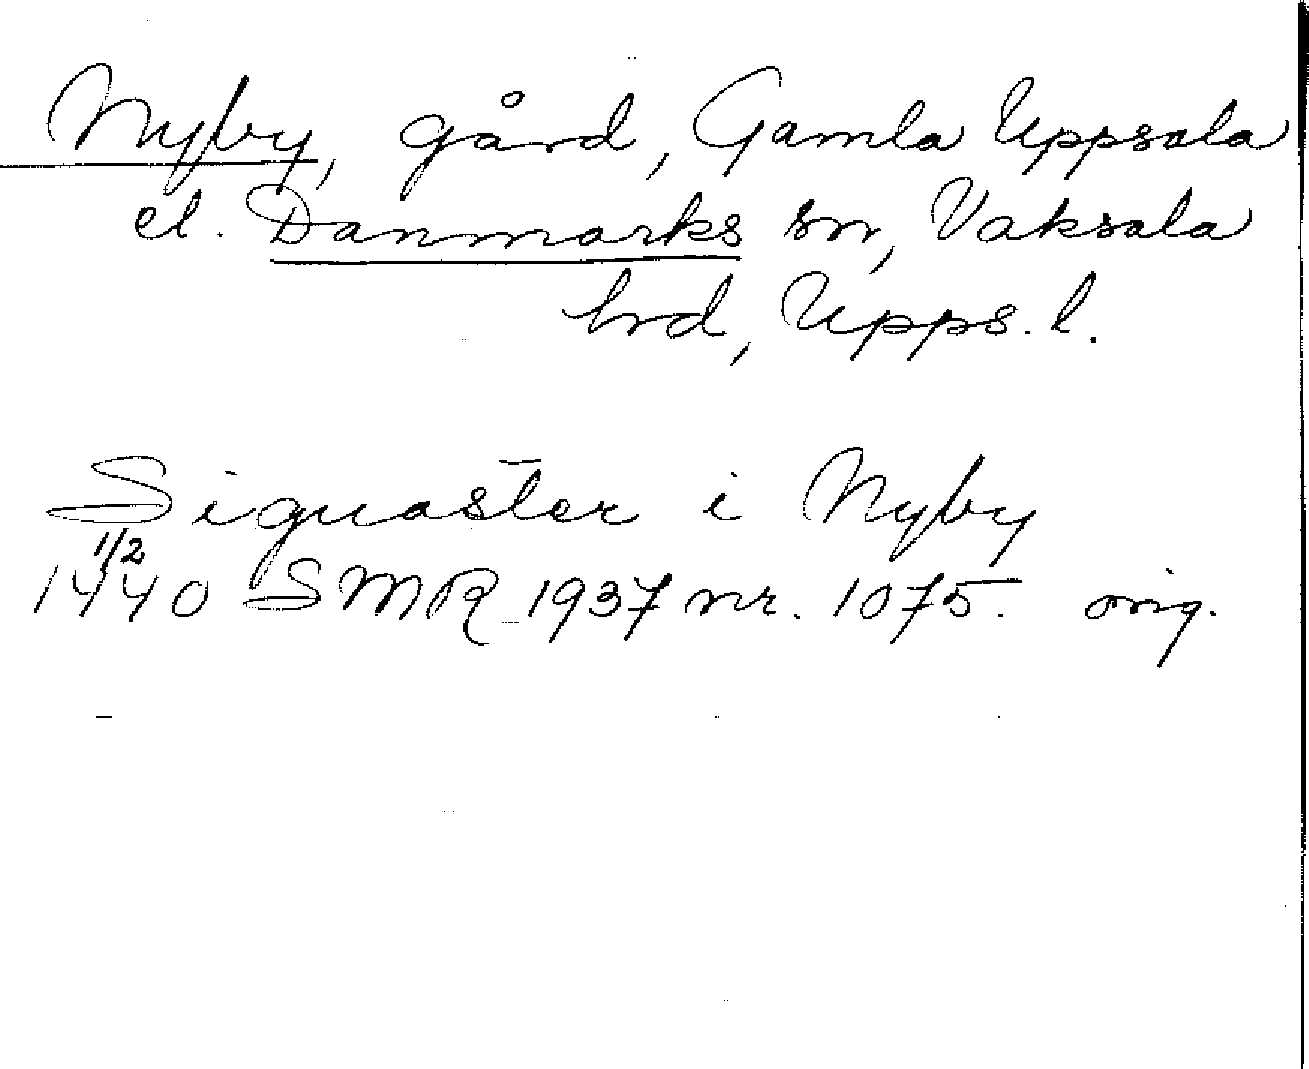 Nyby, gård, Gamla Uppsala
el. Danmarks sn, Vaksala
hrd, Upps. l.
Siguaster i Nyby
1/2
1440 SMR 1937 nr. 1075. orig.